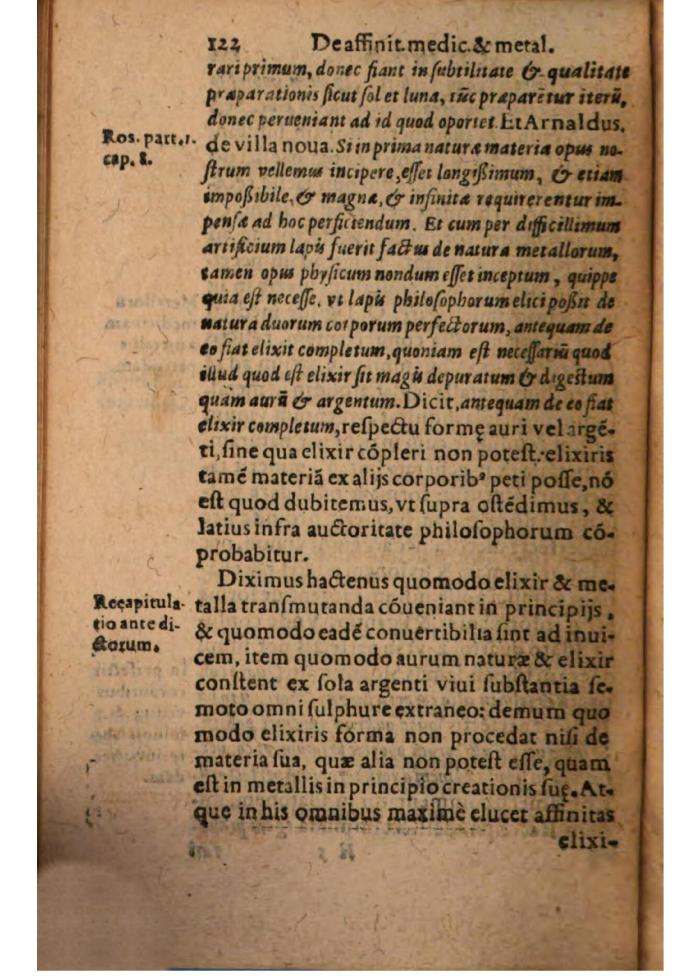 122 De affinit. medic. & metal.
rari primum, donec fiant in ſubtilitate & qualitate
præparationis ſicut ſol et luna, tūc præparētur iterū,
donec perueniant ad id quod oportet. Et Arnaldus.
Ros. part. 1.
cap. 8.
de villa noua. Si in prima naturæ materia opus no-
ſtrum vellemus incipere, eſſet longißimum, & etiam
impoßibile, & magnæ, & infinitæ requirerentur im-
penſæ ad hoc perficiendum. Et cum per difficillimum
artificium lapis fuerit factus de natura metallorum,
tamen opus phyſicum nondum eſſet inceptum, quippe
quia eſt neceſſe, vt lapis philoſophorum elici poßit de
natura duorum corporum perfectorum, antequam de
eo fiat elixit completum, quoniam eſt neceſſariū quod
illud quod eſt elixir ſit magis depuratum & digeſtum
quam aurū & argentum. Dicit, antequam de eo fiat
elixir completum, reſpectu formę auri vel argé-
ti, ſine qua elixir cópleri non poteſt: elixiris
tamé materiā ex alijs corporibꝰ peti poſſe, nó
eſt quod dubitemus, vt ſupra oſtédimus, &
latius infra auctoritate philoſophorum có-
probabitur.
Diximus hactenus quomodo elixir & me-
Recapitula-
tio ante di-
ctorum.
talla tranſmutanda cóueniant in principijs,
& quomodo eadé conuertibilia ſint ad inui-
cem, item quomodo aurum naturæ & elixir
conſtent ex ſola argenti viui ſubſtantia ſe-
moto omni ſulphure extraneo: demum quo
modo elixiris forma non procedat niſi de
materia ſua, quæ alia non poteſt eſſe, quam
eſt in metallis in principio creationis ſuę. At-
que in his omnibus maximè elucet affinitas
elixi-